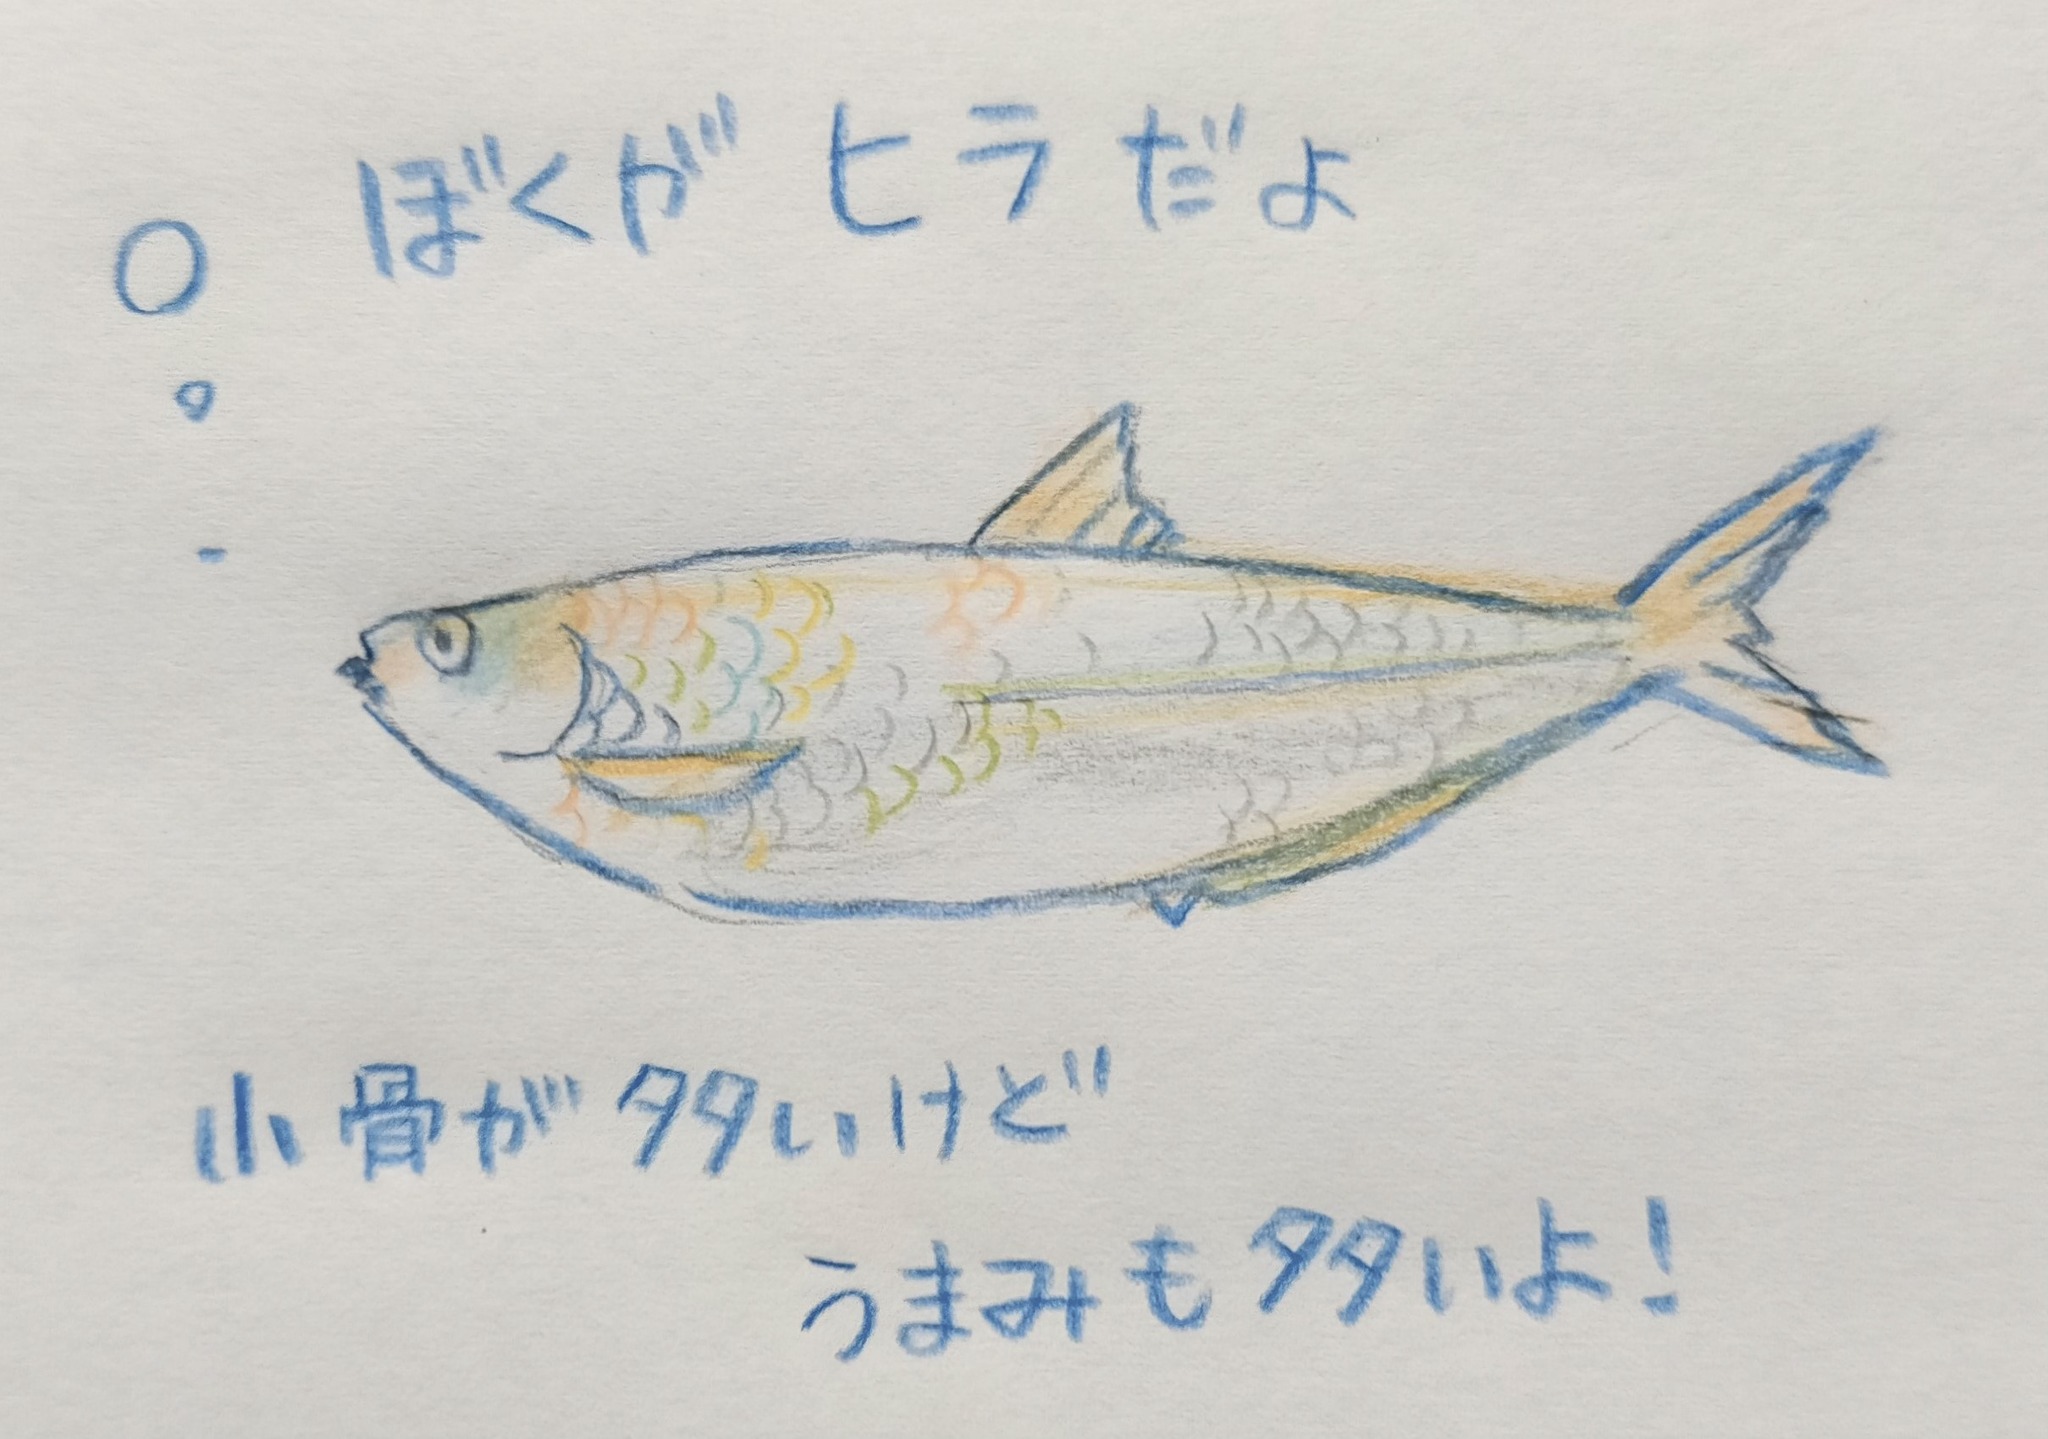 ぼくがヒラだよ
小骨が多いけど
うまみも多いよ!